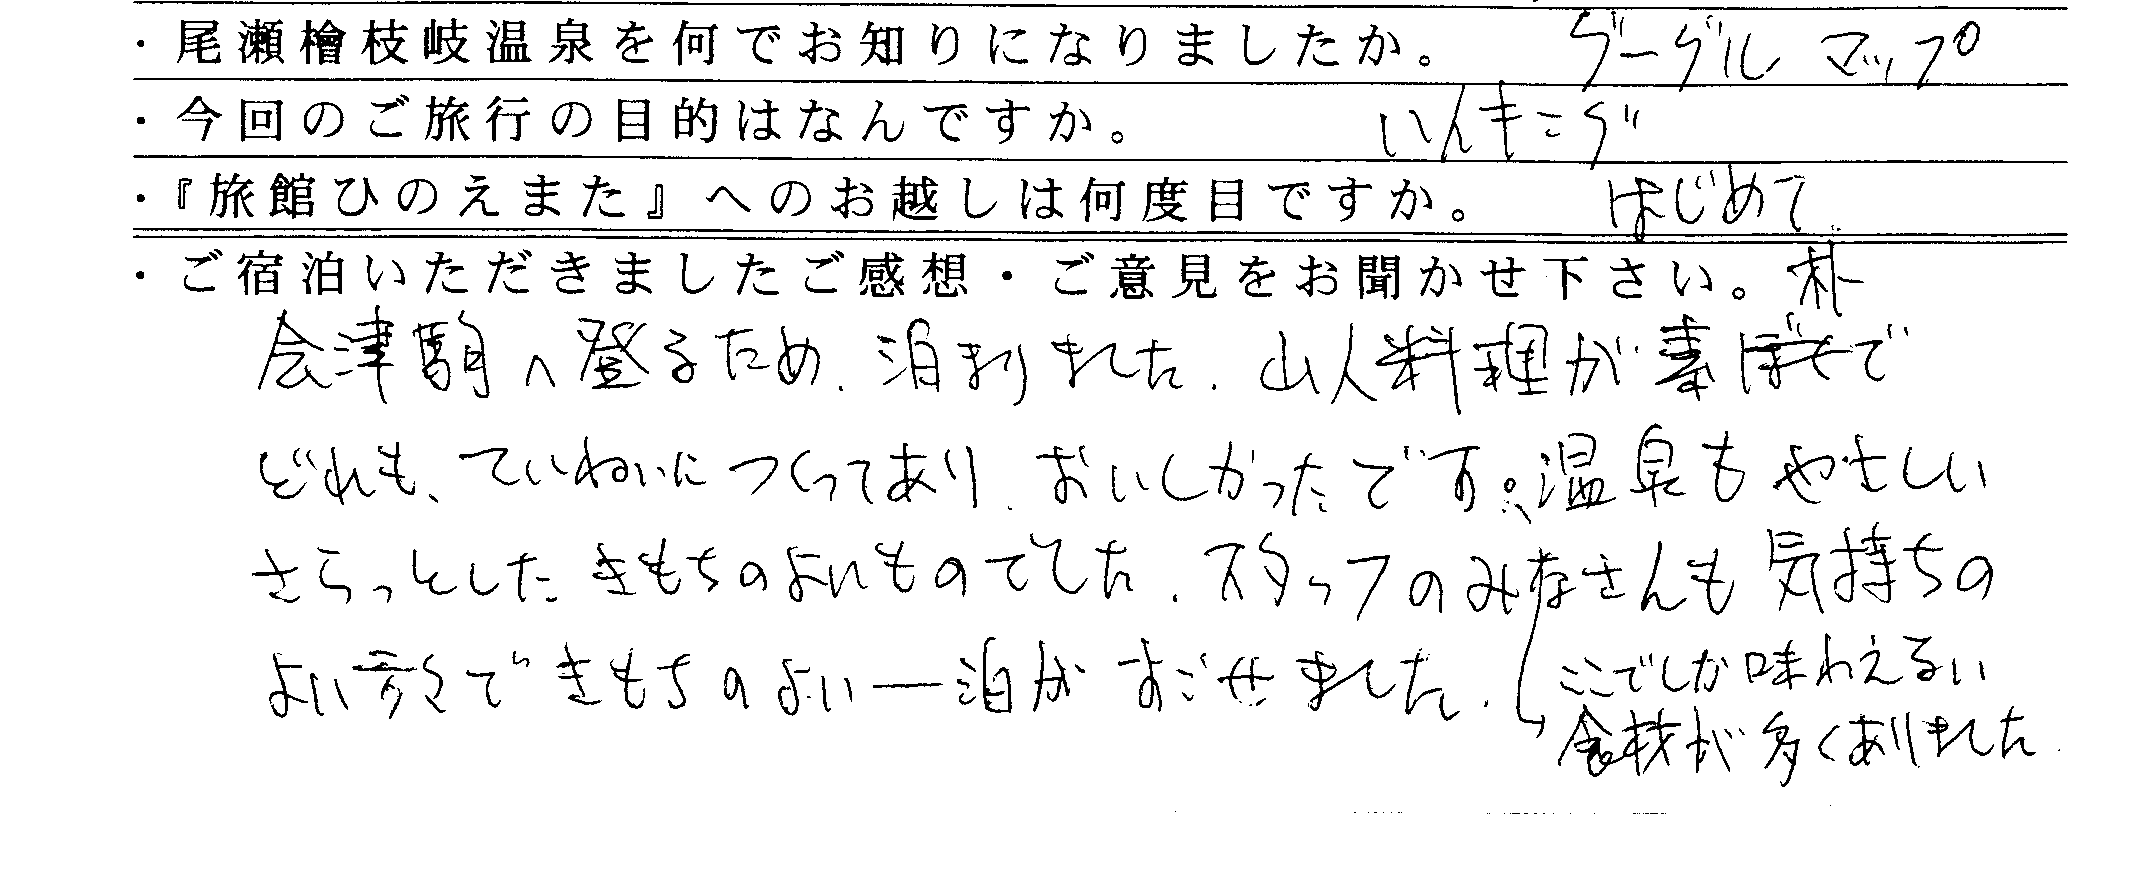 ・尾瀬檜枝岐温泉を何でお知りになりましたか。 グーグル マップ
・今回のご旅行の目的はなんですか。
・『旅館ひのえまた』へのお越しは何度目ですか。 はじめて
・ご宿泊いただきましたご感想・ご意見をお聞かせ下さい。 朴
会津駒へ登るため、泊まりました。山人料理が素ぼくで
どれも、ていねいにつくってあり、おいしかったです。温泉もやさしい
さらっとした きもちのよいものでした。スタッフのみなさんも 気持ちの
よい方々で きもちのよい一泊が すごせました。
ここでしか味わえない
食材が多くありました